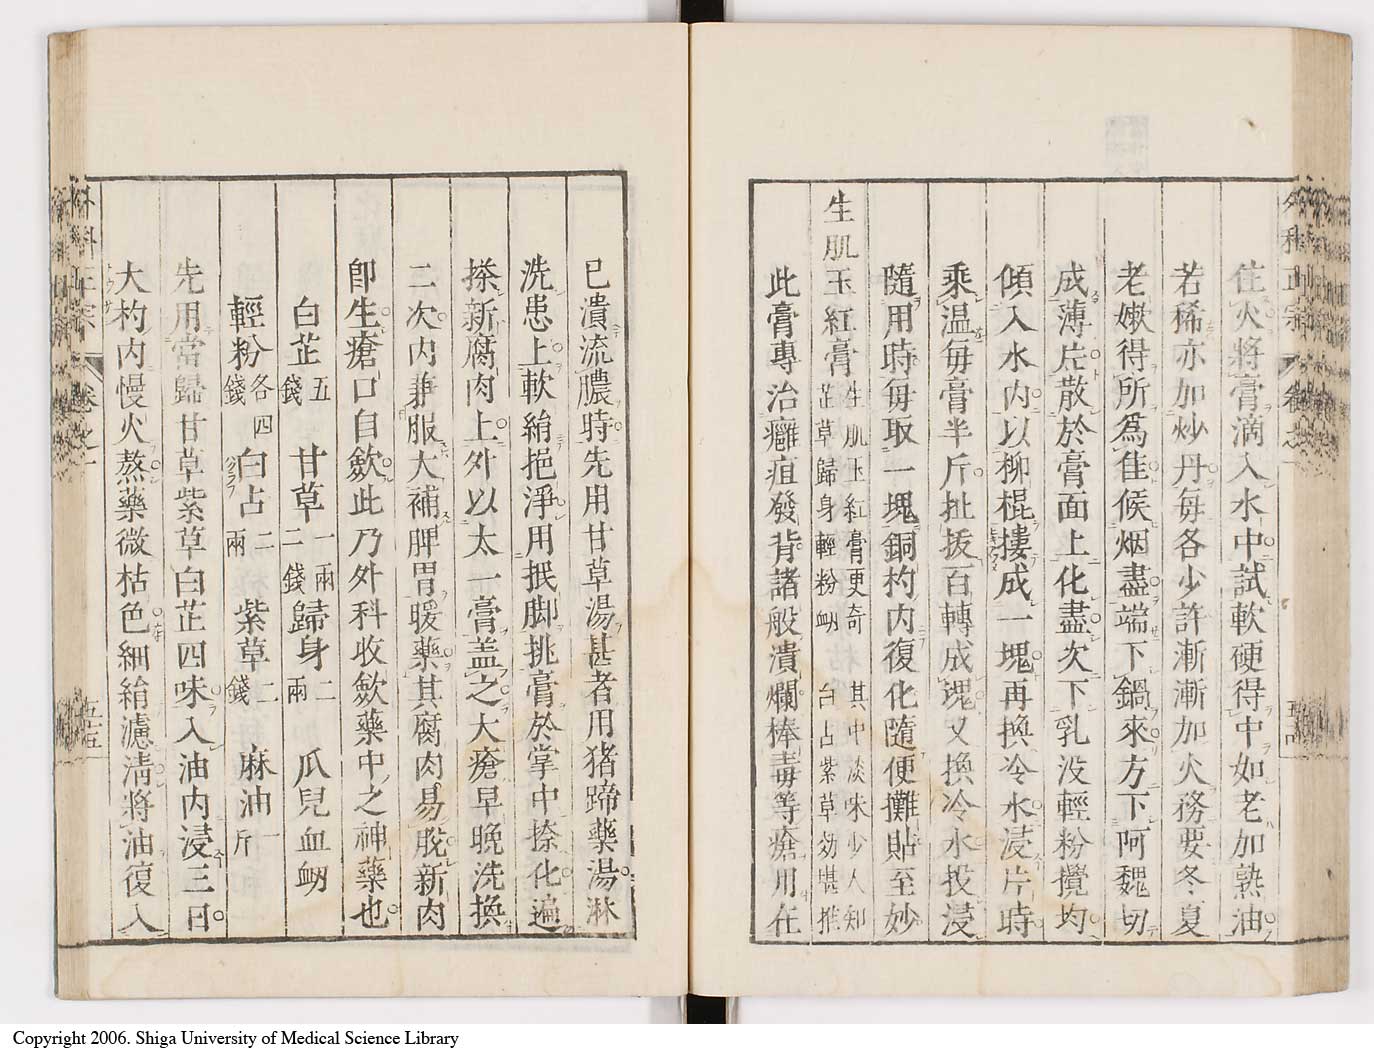 住火將膏滴入水中試軟硬得中如老加熟油
若稀亦加炒丹每各少許漸漸加火務要冬夏
老嫩得所爲佳候烟盡端下鍋來方下阿魏切
成薄片散於膏面上化盡次下乳没輕粉攪均
傾入水内以柳棍摟成一塊再換冷水浸片時
乘温每膏半斤扯拔百轉成塊又換冷水投浸
隨用時每取一塊銅杓内復化隨便攤貼至妙
生肌玉紅膏 生肌玉紅膏更奇 其中淡味少人知
芷草歸身輕粉衂 白占紫草効堪推
此膏專治癰疽發背諸般潰爛棒毒等瘡用在
外科正宗 卷之一
已潰流膿時先用甘草湯甚者用猪蹄藥湯淋
洗患上軟絹挹淨用抿脚挑膏於掌中捺化遍
搽新腐肉上外以太一膏盖之大瘡早晚洗換
二次内兼服大補脾胃暖藥其腐肉易脫新肉
卽生瘡口自歛此乃外科收歛藥中之神藥也
白芷五錢 甘草一兩二錢 歸身二兩 瓜兒血衂
輕粉各四錢 白占二兩 紫草二錢 麻油一斤
先用當歸甘草紫草白芷四味入油内浸三日
大杓内慢火熬藥微枯色細絹濾淸將油復入
卷之一
五十五
Copyright 2006. Shiga University of Medical Science Library